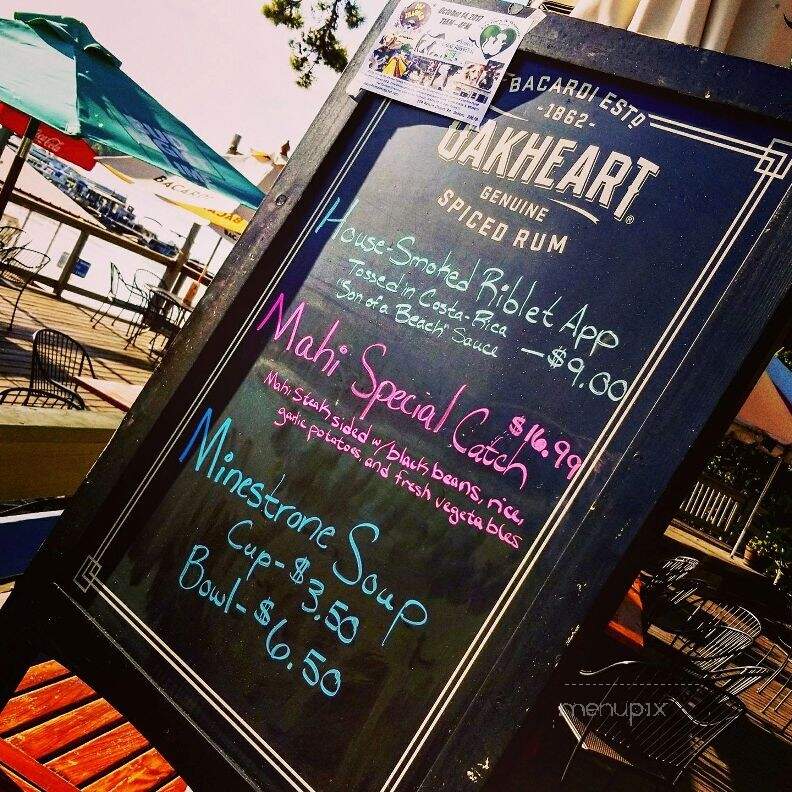 October 14, 2017
11AM - 4PM
BACARDI ESTD
-1862-
OAKHEART®
GENUINE
SPICED RUM
House-Smoked Riblet App
Tossed in Costa-Rica
"Son of a Beach" Sauce — $9.00
Mahi Special Catch
$16.99
Mahi Steak sided w/ black beans, rice,
garlic potatoes, and fresh vegetables
Minestrone Soup
Cup - $3.50
Bowl - $6.50
Coca-Cola
BACARDI
menupix